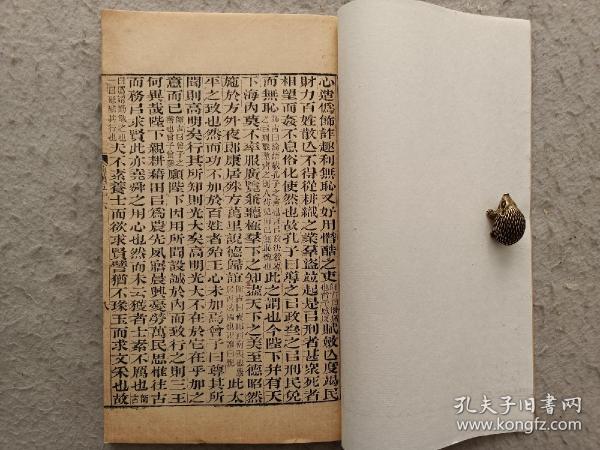 心造僞飾詐趣利無恥又好用憯酷之吏賦斂亡度竭民
財力百姓散亡不得從耕織之業羣盜並起是以刑者甚衆死者
相望而姦不息俗化使然也故孔子曰導之以政齊之以刑民免
而無恥此之謂也今陛下并有天
下海内莫不率服廣覽兼聽極羣下之知盡天下之美至德昭然
施於方外夜郎康居殊方萬里說德歸誼師古曰夜郎西南夷也康居西域國也說讀曰悅此太
平之致也然而功不加於百姓者殆王心未加焉曾子曰尊其所
聞則高明矣行其所知則光大矣高明光大不在於它在乎加之
意而已願陛下因用所聞設誠於内而致行之則三王
何異哉陛下親耕藉田以爲農先夙寤晨興憂勞萬民思惟往古
而務以求賢此亦堯舜之用心也然而未云獲者士素不厲也師古
曰厲謂勸勉之也一曰砥礪其行也夫不素養士而欲求賢譬猶不琢玉而求文采也故
孔夫子旧书网
www.kongfz.com